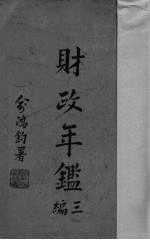 財政年鑑
三編
俞鴻鈞署